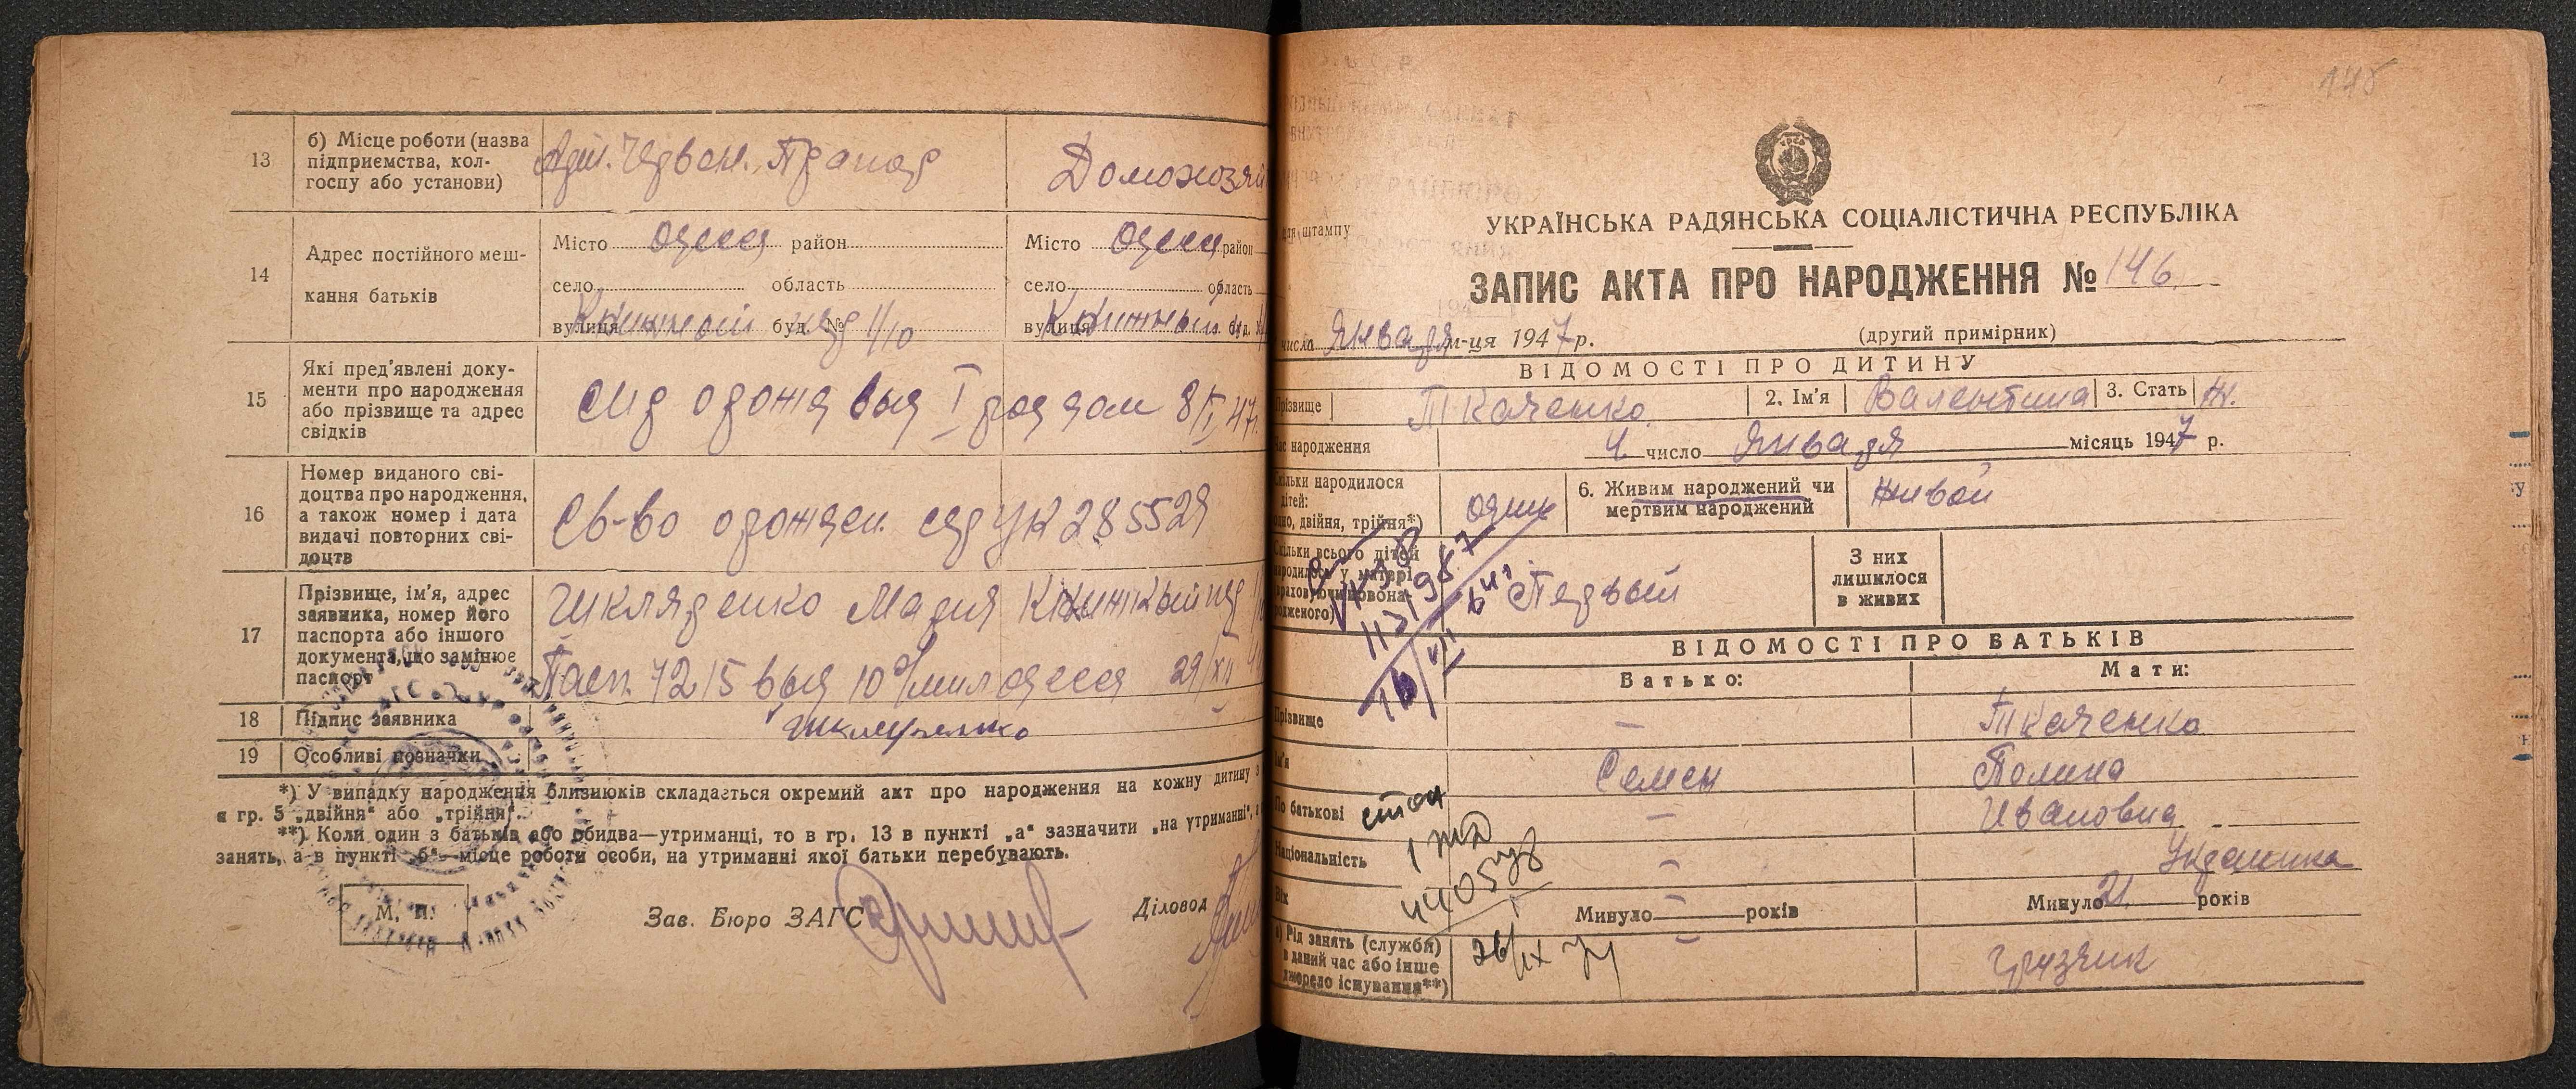 13
б) Місце роботи (назва
підприємства, кол-
госпу або установи)
Червон. Прапор
Домохозяй
14
Адрес постійного меш-
кання батьків
Місто Одесса район
село область
вулиця буд. № 1/10
Місто Одесса район
село область
вулиця буд.
15
Які пред'явлені доку-
менти про народження
або прізвище та адрес
свідків
о рожд выд I род дом 8/I 47г.
16
Номер виданого сві-
доцтва про народження,
а також номер і дата
видачі повторних сві-
доцтв
Св-во о рожден. сер УК 285529
17
Прізвище, ім'я, адрес
заявника, номер його
паспорта або іншого
документа, що замінює
паспорт
Шкляренко Мария
Пасп. 7215 выд 10 о/мил Одесса 29/XII
18 Підпис заявника
Шкляренко
19 Особливі позначки
*) У випадку народження близнюків складається окремий акт про народження на кожну дитину з
в гр. 5 „двійня“ або „трійня“.
**) Коли один з батьків або обидва—утриманці, то в гр. 13 в пункті „а“ зазначити „на утриманні“, а
занять, а в пункті „б“—місце роботи особи, на утриманні якої батьки перебувають.
М. П.
Зав. Бюро ЗАГС
Діловод
145
штампу
УКРАЇНСЬКА РАДЯНСЬКА СОЦІАЛІСТИЧНА РЕСПУБЛІКА
ЗАПИС АКТА ПРО НАРОДЖЕННЯ № 146.
числа Января м-ця 1947 р.
(другий примірник)
ВІДОМОСТІ ПРО ДИТИНУ
Прізвище Ткаченко 2. Ім'я Валентина 3. Стать Ж.
Час народження 4 число Января місяць 1947 р.
Скільки народилося
дітей:
одно, двійня, трійня*)
один
6. Живим народжений чи
мертвим народжений
живой
Скільки всього дітей
народилось у матері
(враховуючи новона-
родженого)
Первый
З них
лишилося
в живих
ВІДОМОСТІ ПРО БАТЬКІВ
Батько:
Мати:
Прізвище — Ткаченко
Ім'я Семен Полина
По батькові — Ивановна
Національність — Украинка
Вік Минуло — років Минуло 21 років
а) Рід занять (служби)
в даний час або інше
джерело існування**)
— грузчик
26/IX 74